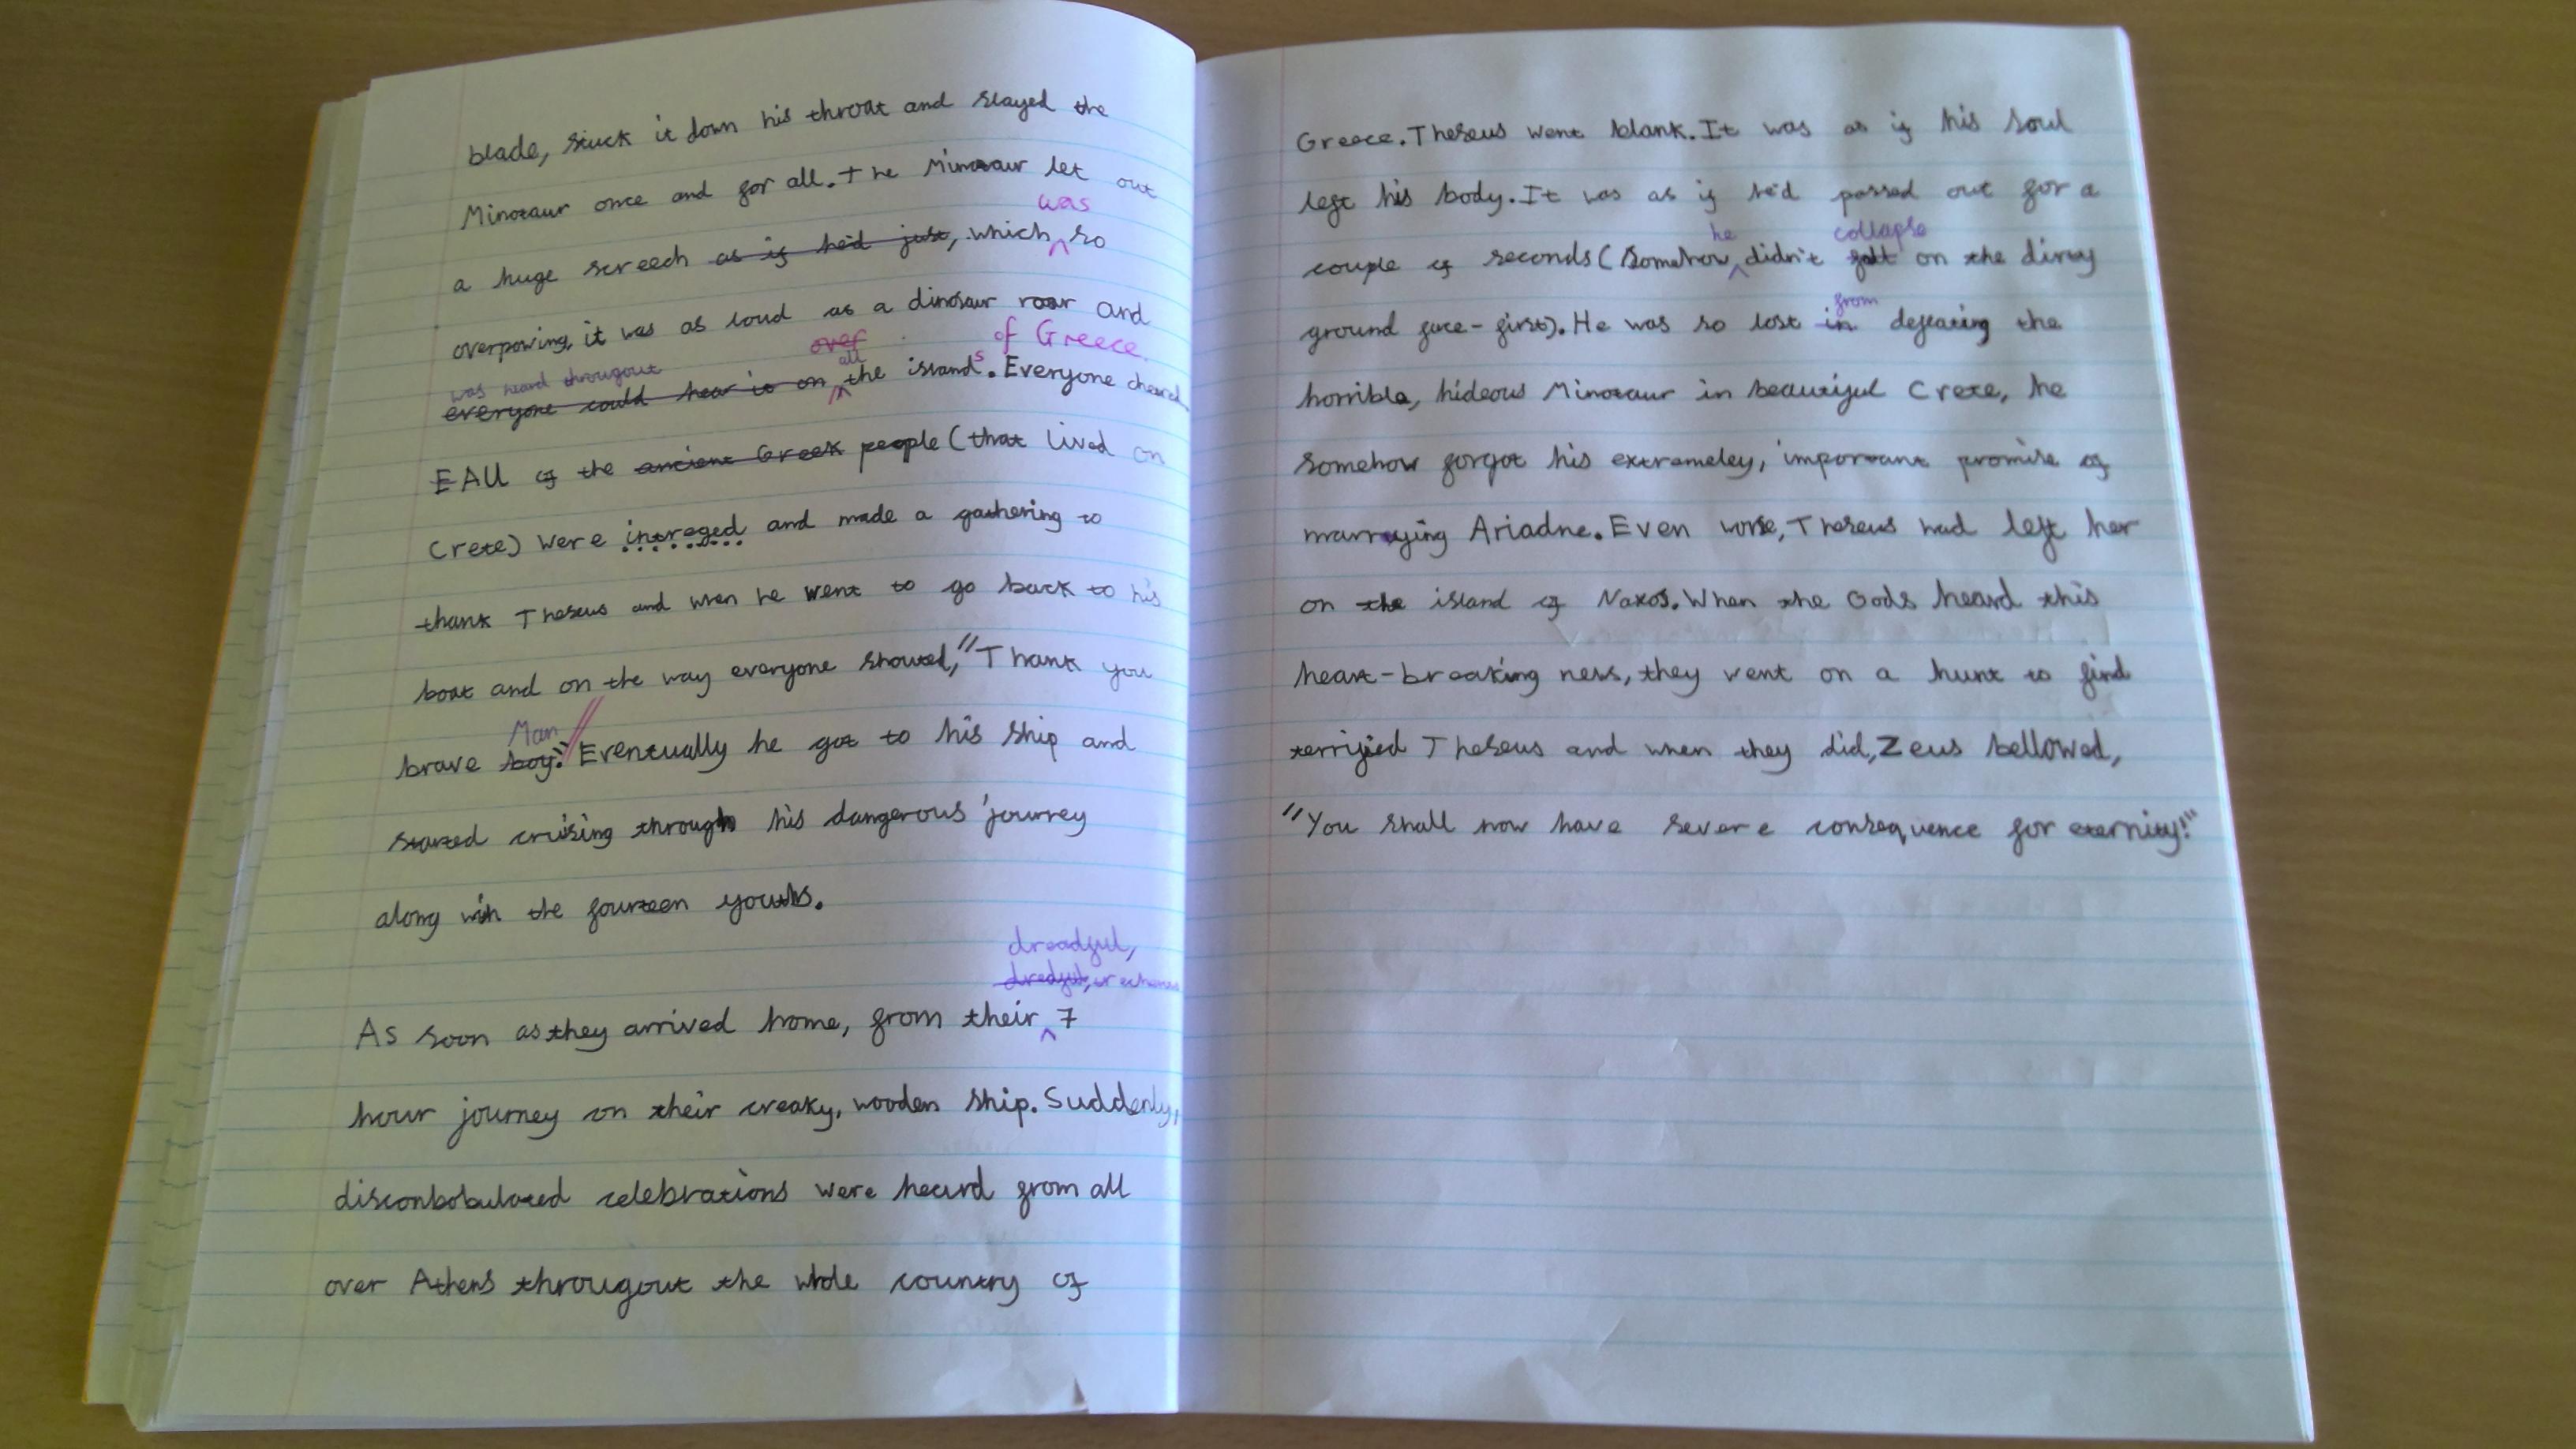 blade, stuck it down his throat and slayed the
Minotaur once and for all. The Minotaur let out
was
a huge screech as if he'd just, which so
overpowing, it was as loud as a dinosaur roar and
over of Greece.
was heard througout all
everyone could hear it on the islands. Everyone cheered.
EAll of the ancient Greek people (that lived on
Crete) were intreged and made a gathering to
thank Theseus and when he went to go back to his
boat and on the way everyone shouted, "Thank you
Man //
brave boy." Eventually he got to his ship and
started cruising through his dangerous journey
along with the fourteen youths.
dreadful,
dredful,
As soon as they arrived home, from their 7
hour journey on their creaky, wooden ship. Suddenly,
disconbobulated celebrations were heard from all
over Athens througout the whole country of
Greece. Theseus went blank. It was as if his soul
left his body. It was as if he'd passed out for a
he collapse
couple of seconds (Somehow didn't on the dirty
from
ground face-first). He was so lost in defeating the
horrible, hideous Minotaur in beautiful Crete, he
somehow forgot his extremeley, important promise of
marrying Ariadne. Even worse, Theseus had left her
on the island of Naxos. When the Gods heard this
heart-breaking ness, they went on a hunt to find
terrified Theseus and when they did, Zeus bellowed,
"You shall now have severe consequence for eternity!"